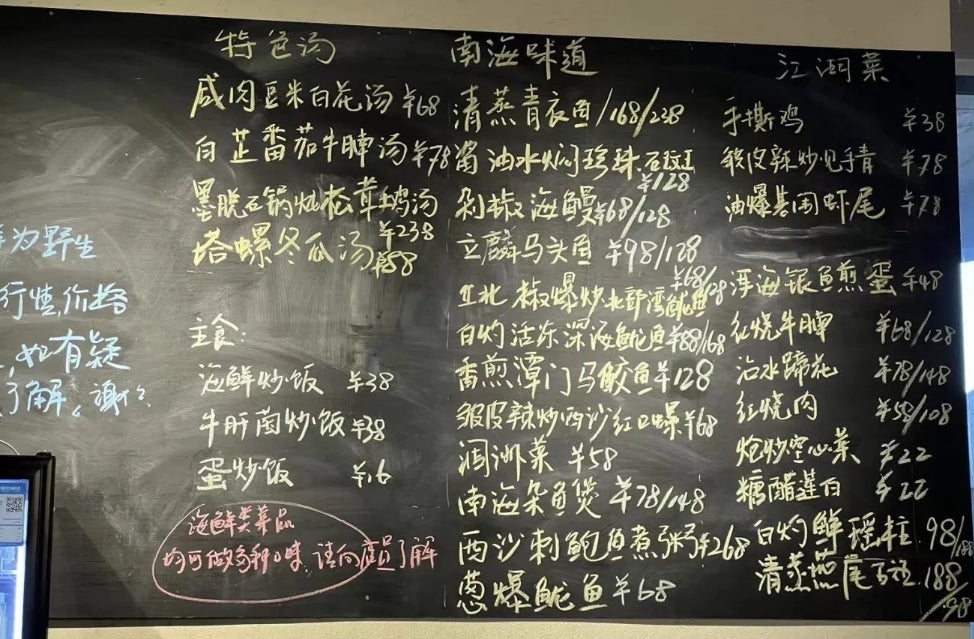 特色汤
咸肉豆米白花汤 ¥68
白芷番茄牛腩汤 ¥78
墨脱石锅炖松茸鸡汤
¥238
塔螺冬瓜汤 ¥88
主食:
海鲜炒饭 ¥38
牛肝菌炒饭 ¥38
蛋炒饭 ¥16
海鲜类菜品
均可做多种口味,请向店员了解
为野生
行情价格
,如有疑
了解。谢谢
南海味道
清蒸青衣鱼/168/238
酱油水焖珍珠石斑
¥128
剁椒海鳗 ¥68/128
立麟马头鱼 ¥98/128
¥68/128
椒爆炒北部湾鱿鱼
白灼活冻深海鱿鱼 ¥88/168
香煎潭门马鲛鱼 ¥128
皱皮辣炒西沙红口螺 ¥68
涠洲菜 ¥58
南海杂鱼煲 ¥78/148
西沙刺鲍鱼煮粥 ¥268
葱爆鱿鱼 ¥68
江湖菜
手撕鸡 ¥38
皱皮辣炒见手青 ¥78
油爆基围虾尾 ¥78
浮海银鱼煎蛋 ¥48
红烧牛腩 ¥68/128
沾水蹄花 ¥78/148
红烧肉 ¥58/108
炝炒空心菜 ¥22
糖醋莲白 ¥22
白灼鲜瑶柱 98/188
清蒸燕尾 188